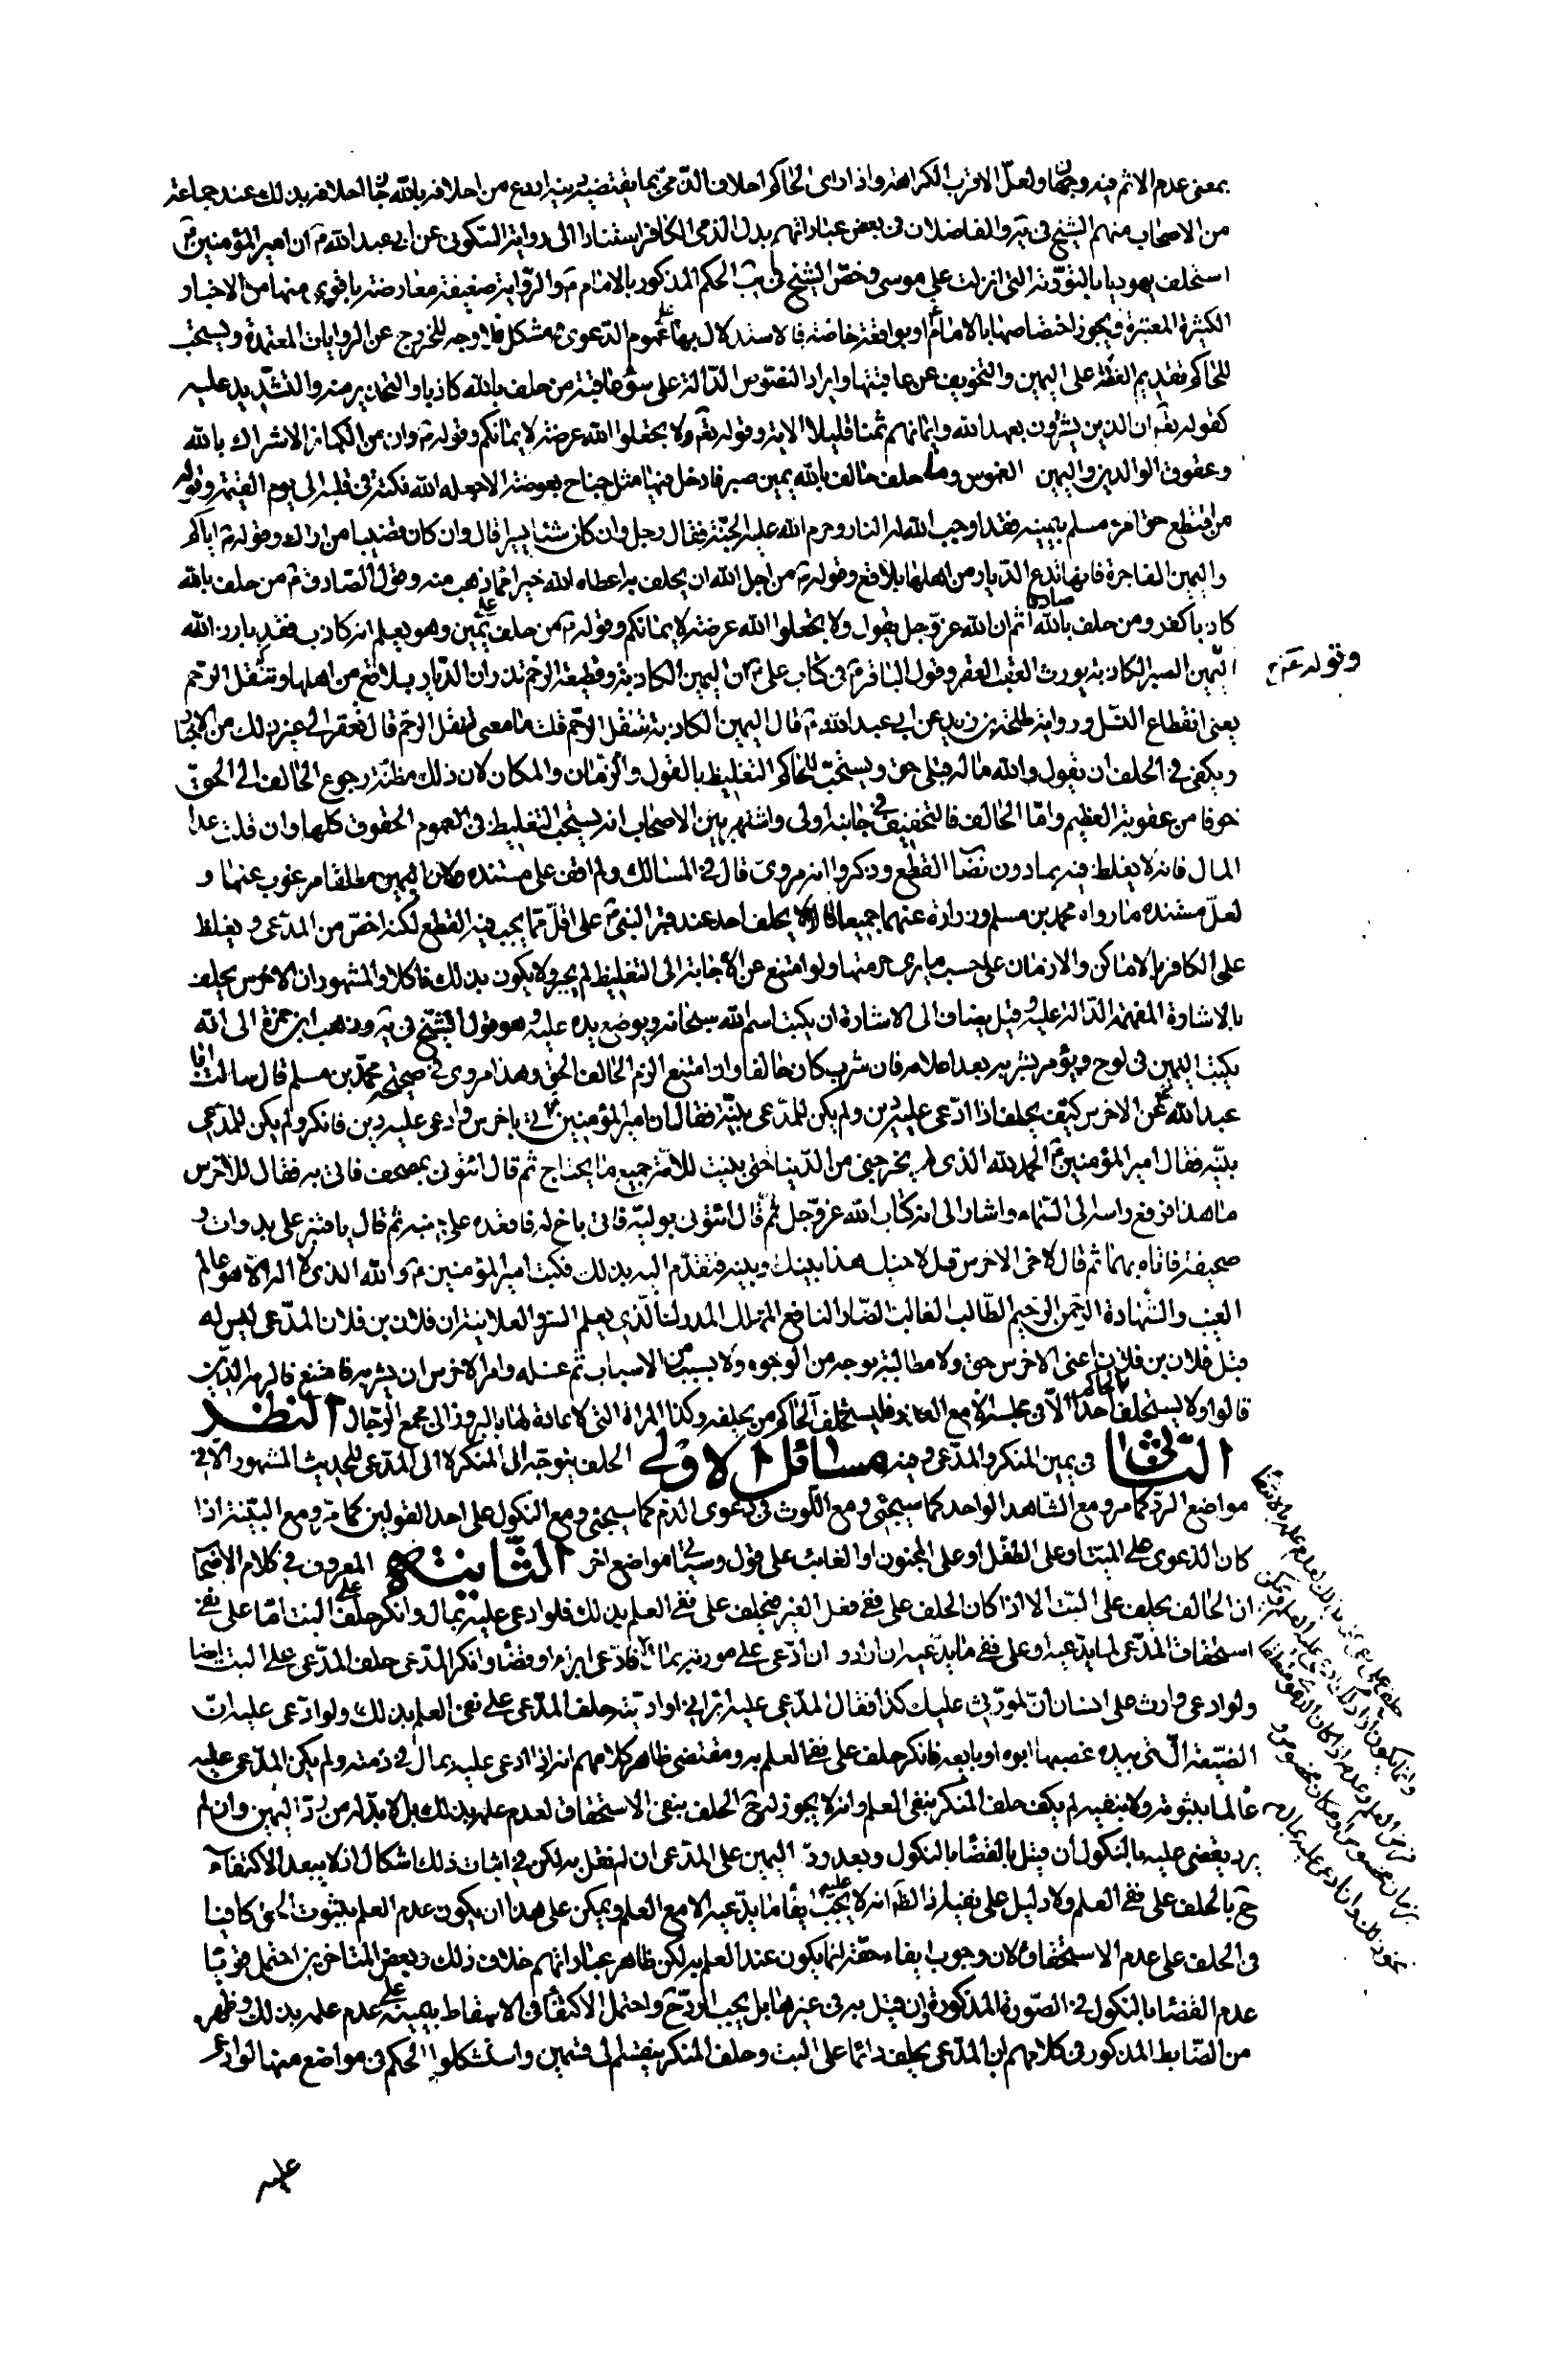 بمعنى عدم الاثم فيه وجهان ولعل الاقرب الكراهة واذا راى الحاكم احلاف الذمى بما يقتضيه دينه اردع من احلافه بالله جاز احلافه بذلك عند جماعة
من الاصحاب منهم الشيخ فى يه والفاضلان وفى بعض عباراتهم بدل الذمى الكافر استنادا الى رواية السكونى عن ابى عبد الله ع ان امير المؤمنين ع
استحلف يهوديا بالتورية التى انزلت على موسى وخص الشيخ فى يب الحكم المذكور بالامام ع والرواية ضعيفة معارضة باقوى منها من الاخبار
الكثيرة المعتبرة فيجوز اختصاصها بالامام ع او بواقعة خاصة فالاستدلال بها على عموم الدعوى مشكل فلا وجه للخروج عن الروايات المعتمدة ويستحب
للحاكم تقديم العظة على اليمين والتخويف عن عاقبتها وايراد النصوص الدالة على سوء عاقبة من حلف بالله كاذبا والتحذير منه والتشديد عليه
كقوله تعه ان الذين يشترون بعهد الله وايمانهم ثمنا قليلا الاية وقوله تعه ولا تجعلوا الله عرضة لايمانكم وقوله ع وان من الكبائر الاشراك بالله
وعقوق الوالدين واليمين الغموس وما حلف حالف بالله يمين صبر فادخل فيها مثل جناح بعوضة الا جعله الله نكتة فى قلبه الى يوم القيمة وقوله
من اقتطع حق امرء مسلم بيمينه فقد اوجب الله له النار وحرم الله عليه الجنة فقال رجل وان كان شيئا يسيرا قال وان كان قضيبا من اراك وقوله ع اياكم
واليمين الفاجرة فانها تدع الديار من اهلها بلاقع وقوله ع من اجل الله ان يحلف به اعطاه الله خيرا مما ذهب منه وقول الصادق ع من حلف بالله
كاذبا كفر ومن حلف بالله صادقا اثم ان الله عز وجل يقول ولا تجعلوا الله عرضة لايمانكم وقوله ع من حلف على يمين وهو يعلم انه كاذب فقد بارز الله
وقوله ع
اليمين الصبر الكاذبة يورث العقب الفقر وقول الباقر ع فى كتاب على ع ان اليمين الكاذبة وقطيعة الرحم تذران الديار بلاقع من اهلها وتنغل الرحم
يعنى انقطاع النسل ورواية طلحة بن زيد عن ابى عبد الله ع قال اليمين الكاذبة تنغل الرحم قلت ما معنى تنغل الرحم قال تعقر الى غير ذلك من الاخبار
ويكفى فى الحلف ان يقول والله ما له قبلى حق ويستحب للحاكم التغليظ بالقول والزمان والمكان لان ذلك مظنة رجوع الحالف الى الحق
خوفا من عقوبة العظيم واما الحالف فالتخفيف فى جانبه اولى واشتهر بين الاصحاب انه يستحب التغليظ فى العموم الحقوق كلها وان قلت عدا
المال فانه لا يغلظ فيه بما دون نصاب القطع وذكروا انه مروى قال فى المسالك ولم اقف على مستنده ولان اليمين مطلقا مرغوب عنها و
لعل مستنده ما رواه محمد بن مسلم وزرارة عنهما جميعا قالا لا يحلف احد عند قبر النبى ع على اقل مما يجب فيه القطع لكنه اخص من المدعى ويغلظ
على الكافر بالاماكن والازمان على حسب ما يرى حرمتها ولو امتنع عن الاجابة الى التغليظ لم يجبر ولا يكون بذلك ناكلا والمشهور ان الاخرس يحلف
بالاشارة المفهمة الدالة عليه وقيل يضاف الى الاشارة ان يكتب اسم الله سبحانه ويوضع يده عليه وهو قول الشيخ فى يه وذهب ابن حمزة الى انه
يكتب اليمين فى لوح ويؤمر بشربه بعد اعلامه فان شرب كان حالفا وان امتنع الزم الحالف الحق وهذا مروى فى صحيحة محمد بن مسلم قال سالت ابا
عبد الله ع عن الاخرس كيف يحلف اذا ادعى عليه دين ولم يكن للمدعى بينة فقال ان امير المؤمنين ع اتى باخرس وادعى عليه دين فانكر ولم يكن للمدعى
بينة فقال امير المؤمنين ع الحمد لله الذى لم يخرجنى من الدنيا حتى بينت للامة جميع ما يحتاج ثم قال ائتونى بمصحف فاتى به فقال للاخرس
ما هذا فرفع راسه الى السماء واشار الى انه كتاب الله عز وجل ثم قال ائتونى بوليه فاتى باخ له فاقعده على جنبه ثم قال يا قنبر على بدواة و
صحيفة فاتاه بهما ثم قال لاخى الاخرس قل لاخيك هذا بينك وبينه فتقدم اليه بذلك فكتب امير المؤمنين ع والله الذى لا اله الا هو عالم
الغيب والشهادة الرحمن الرحيم الطالب الغالب الضار النافع المهلك المدرك الذى يعلم السر والعلانية ان فلان بن فلان المدعى ليس له
قبل فلان بن فلان اعنى الاخرس حق ولا مطالبة بوجه من الوجوه ولا بسبب من الاسباب ثم غسله وامر الاخرس ان يشربه فامتنع فالزمه الدين
قالوا ولا يستحلف الحاكم احدا الا فى مجلسه الا مع العذر فليستحلف الحاكم من يحلفه وكذا المراة التى لا عادة لها بالبروز الى مجمع الرجال النظر
الثانى فى يمين المنكر والمدعى وفيه مسائل الاولى الحلف يتوجه الى المنكر لا الى المدعى للحديث المشهور الا فى
مواضع الرد كما مر ومع الشاهد الواحد كما سيجئ ومع اللوث فى دعوى الدم كما سيجئ ومع النكول على احد القولين كما مر ومع البينة اذا
كان الدعوى على الميت او على الطفل او على المجنون او الغائب على قول وسياتى مواضع اخر الثانية المعروف فى كلام الاصحاب
ان الحالف يحلف على البت الا اذا كان الحلف على نفى فعل الغير فيحلف على نفى العلم بذلك فلو ادعى عليه بمال وانكر حلف على البت اما على نفى
استحقاق المدعى لما يدعيه او على نفى ما يدعيه ان اراد وان ادعى على مورثه بمال فادعى ابراء او قضاء وانكر المدعى حلف المدعى على البت ايضا
ولو ادعى وارث على انسان ان لمورثى عليك كذا فقال المدعى عليه ابرانى او اديته حلف المدعى على نفى العلم بذلك ولو ادعى عليه ان
الضيعة التى بيده غصبها ابوه او بايعه فانكر حلف على نفى العلم به ومقتضى ظاهر كلامهم انه اذا ادعى عليه بمال فى ذمته ولم يكن المدعى عليه
عالما بثبوته ولا بنفيه لم يكف حلف المنكر بنفى العلم وانه لا يجوز له ح الحلف بنفى الاستحقاق لعدم علمه بذلك بل لا بد له من رد اليمين وان لم
يرد يقضى عليه بالنكول ان قيل بالقضاء بالنكول وبعد رد اليمين على المدعى ان لم نقل به لكن فى اثبات ذلك اشكال اذ لا يبعد الاكتفاء
ح بالحلف على نفى العلم ولا دليل على نفيه اذ الظاهر انه لا يجب عليه ايفاء ما يدعيه الا مع العلم ويمكن على هذا ان يكون عدم العلم بثبوت الحق كافيا
فى الحلف على عدم الاستحقاق لان وجوب ايفاء حقه انما يكون عند العلم به لكن ظاهر عباراتهم خلاف ذلك وبعض المتاخرين احتمل قويا
عدم القضاء بالنكول فى الصورة المذكورة وان قيل به فى غيرها بل يجب الرد ح واحتمل الاكتفاء فى الاسقاط بيمينه على عدم علمه بذلك وظهر
من الضابط المذكور فى كلامهم ان المدعى يحلف دائما على البت وحلف المنكر ينقسم الى قسمين واستشكلوا الحكم فى مواضع منها لو ادعى
عليه